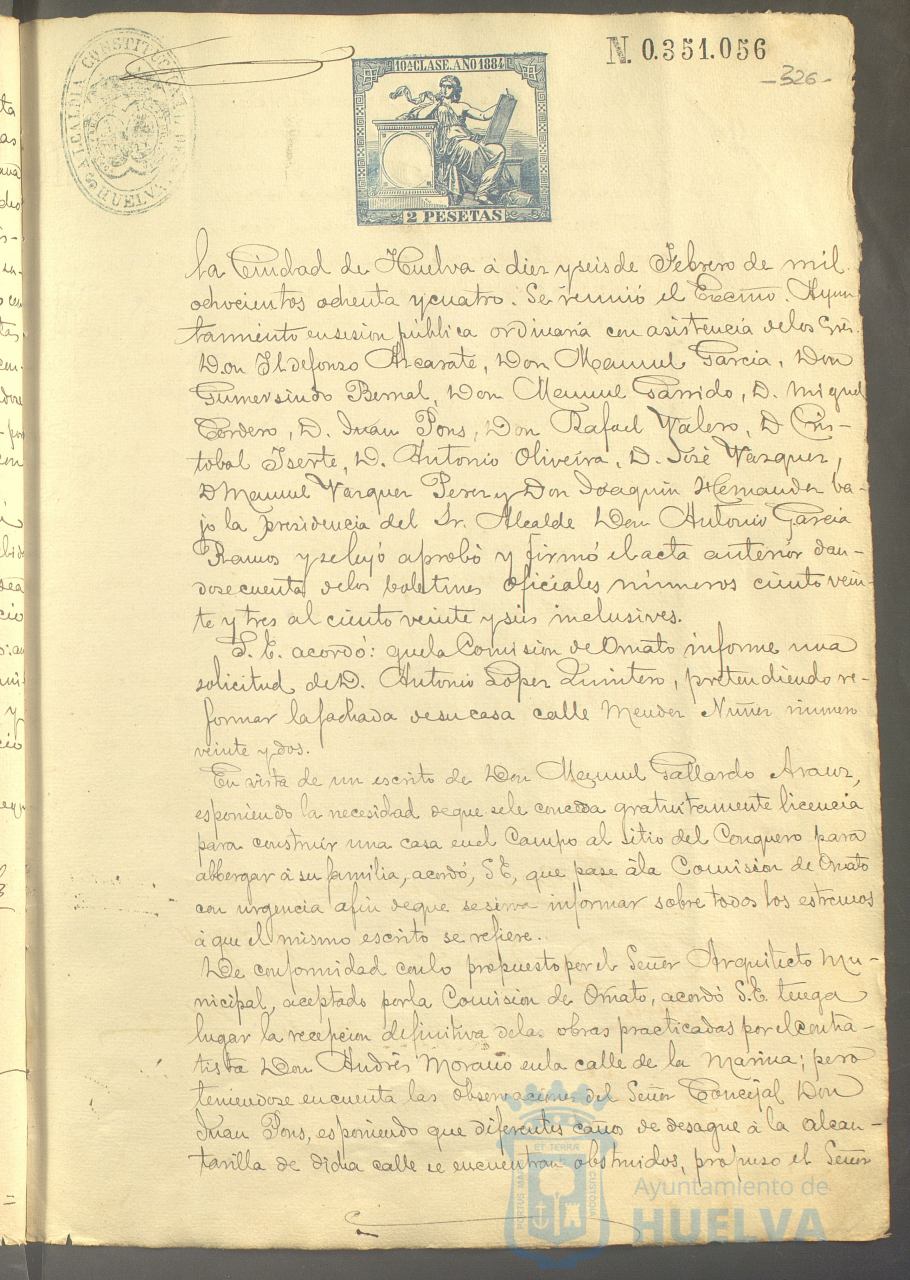 N. 0.351.056
-326-
ALCALDIA CONSTITUCIONAL DE HUELVA
10ª CLASE. AÑO 1884
2 PESETAS
la Ciudad de Huelva á diez y seis de Febrero de mil
ochocientos ochenta y cuatro. Se reunió el Excmo. Ayun
tamiento en sesion pública ordinaria con asistencia de los Sres.
Don Ildefonso Alcarate, Don Manuel Garcia, Don
Gumersindo Bernal, Don Manuel Garrido, D. Miguel
Cordero, D. Juan Pons, Don Rafael Valero, D Cris-
tobal Iserte, D. Antonio Oliveira, D. José Vazquez,
D Manuel Vazquez Perez y Don Joaquin Hernandez ba-
jo la presidencia del Sr. Alcalde Don Antonio Garcia
Ramos y se leyó aprobó y firmó el acta anterior dan-
dose cuenta de los boletines oficiales números ciento vein-
te y tres al ciento veinte y seis inclusives.
S. E. acordó: que la Comision de Ornato informe una
solicitud de D. Antonio Lopez Quintero, pretendiendo re-
formar la fachada de su casa calle Mendez Nuñez número
veinte y dos.
En vista de un escrito de Don Manuel Gallardo Arauz,
esponiendo la necesidad de que se le conceda gratuitamente licencia
para construir una casa en el Campo al sitio del Conquero para
albergar á su familia, acordó, S E, que pase á la Comision de Ornato
con urgencia afin de que se sirva informar sobre todos los estremos
á que el mismo escrito se refiere.
De conformidad con lo propuesto por el Señor Arquitecto Mu-
nicipal, aceptado por la Comision de Ornato, acordó S. E. tenga
lugar la recepcion definitiva de las obras practicadas por el contra-
tista Don Andrés Moraño en la calle de la Marina; pero
teniendose en cuenta las observaciones del Señor Concejal Don
Juan Pons, esponiendo que diferentes caños de desague á la alcan-
tarilla de dicha calle se encuentran obstruidos, propuso el Señor
PORTUS MARIS ET TERRAE CUSTODIA
Ayuntamiento de
HUELVA